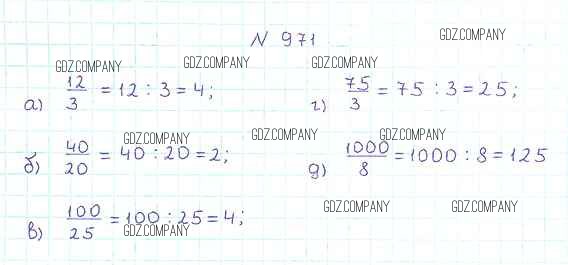 N 971
GDZ.COMPANY
GDZ.COMPANY GDZ.COMPANY GDZ.COMPANY
а) 12/3 = 12 : 3 = 4;
г) 75/3 = 75 : 3 = 25;
GDZ.COMPANY GDZ.COMPANY GDZ.COMPANY
б) 40/20 = 40 : 20 = 2;
д) 1000/8 = 1000 : 8 = 125
в) 100/25 = 100 : 25 = 4;
GDZ.COMPANY GDZ.COMPANY GDZ.COMPANY